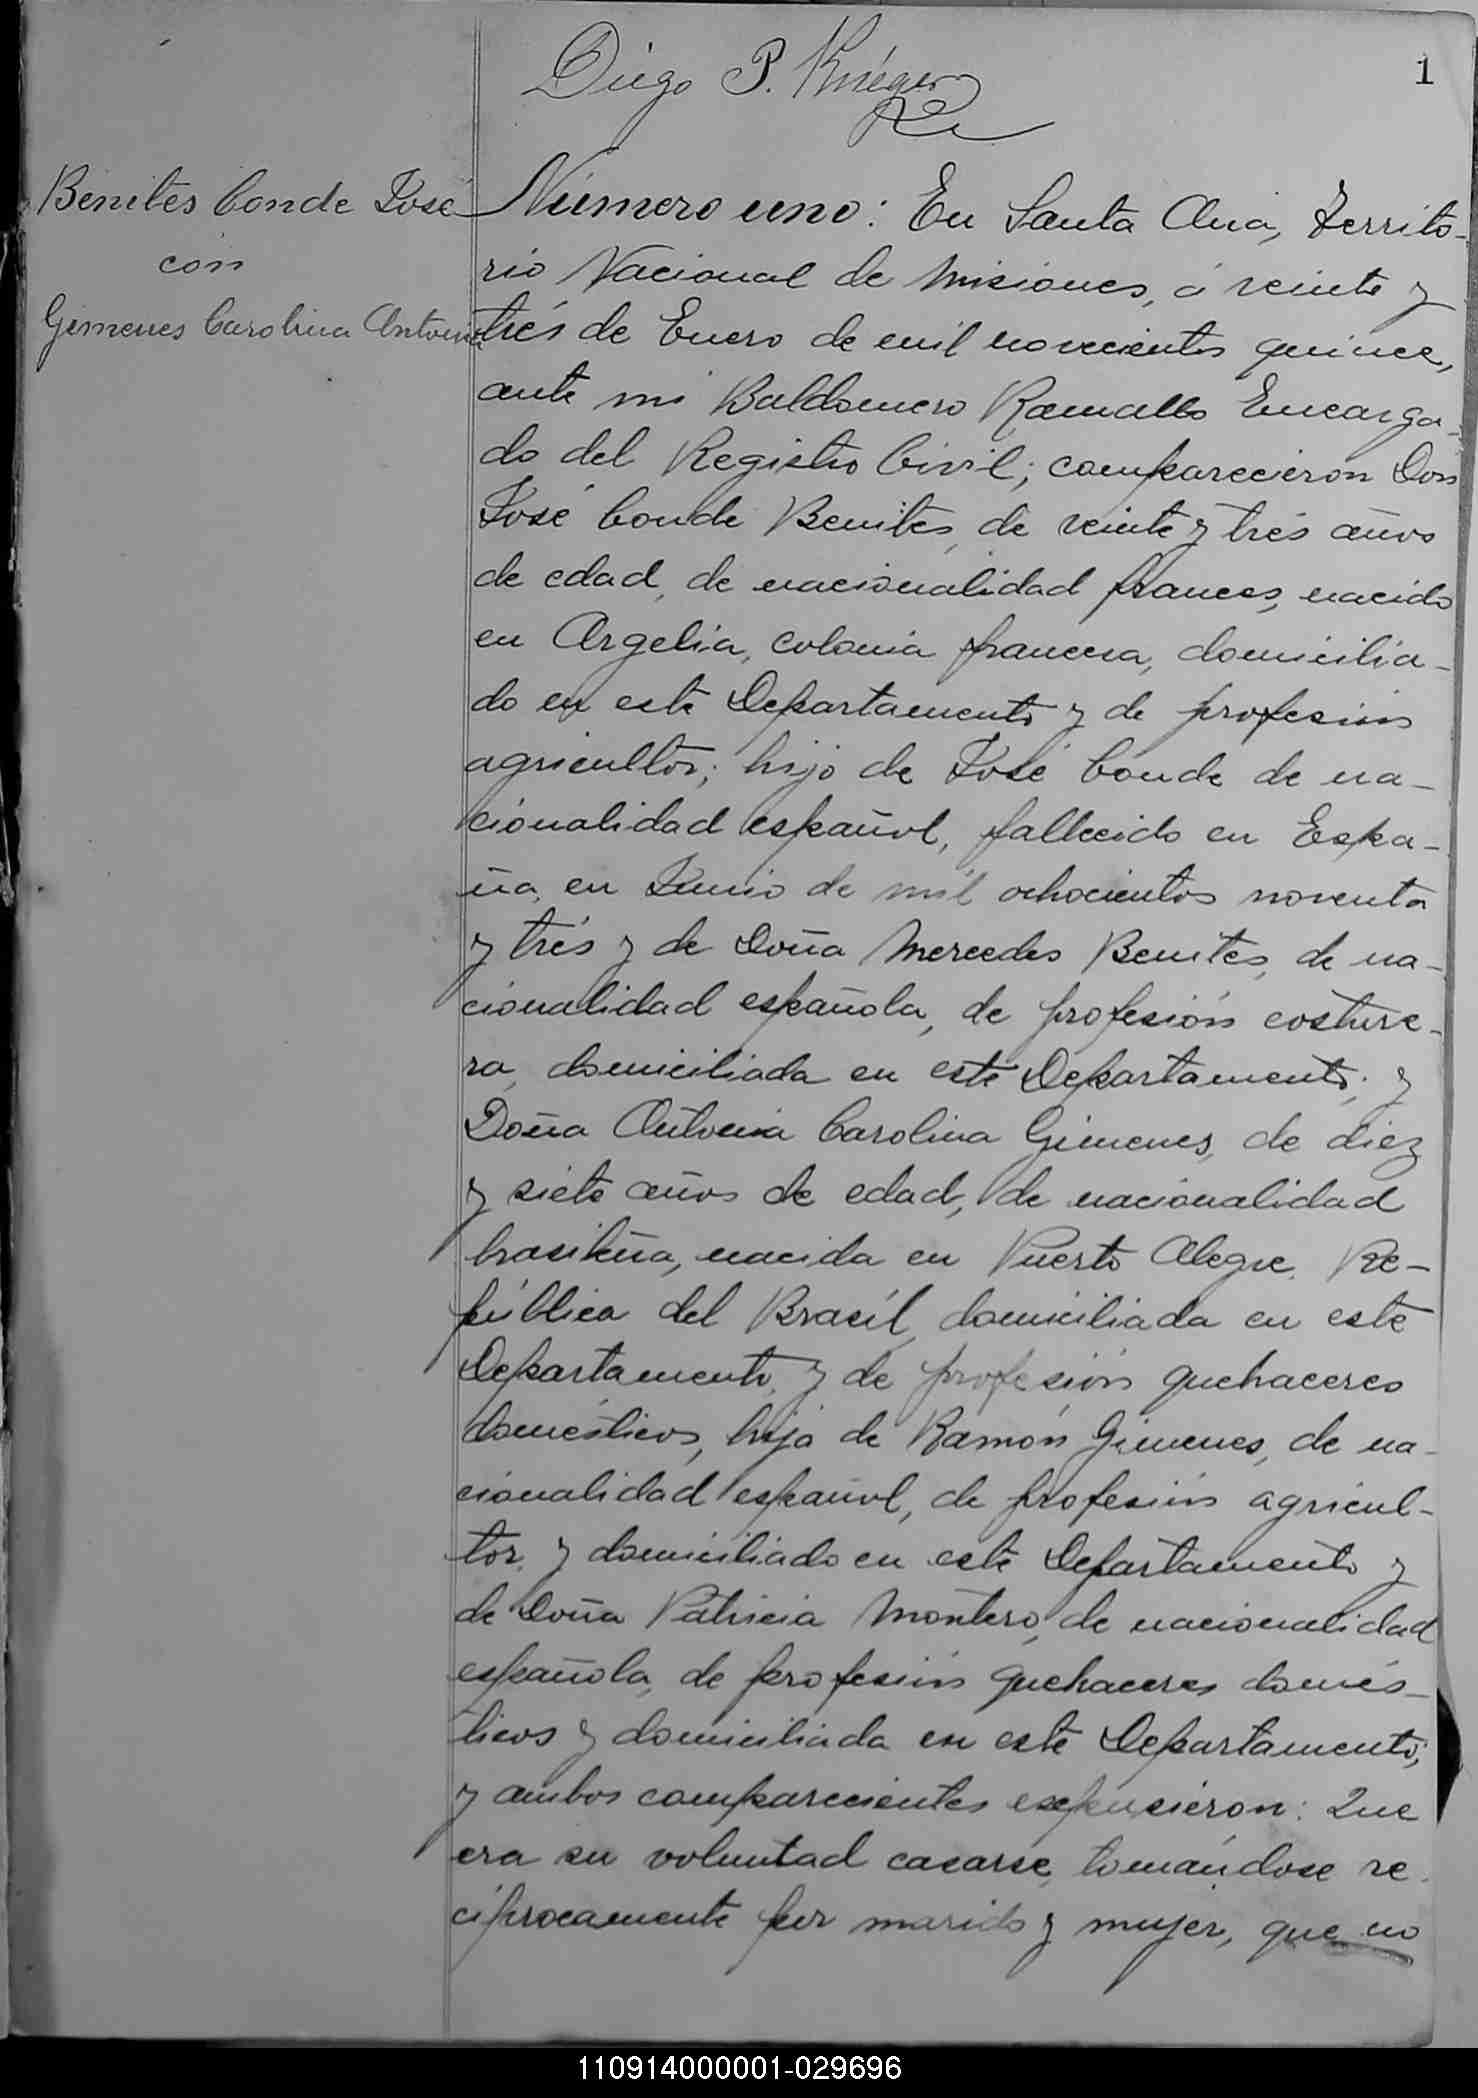 Diego P. Krieger
1
Benites Conde José
con
Gimenes Carolina Antonia
Número uno: En Santa Ana, Territo-
rio Nacional de Misiones, á veinte y
trés de Enero de mil novecientos quince,
ante mi Baldomero Ramallo Encarga-
do del Registro Civil; comparecieron Don
José Conde Benites, de veinte y trés años
de edad, de nacionalidad frances, nacido
en Argelia, colonia francesa, domicilia-
do en este Departamento y de profesión
agricultor; hijo de José Conde de na-
cionalidad español, fallecido en Espa-
ña, en Junio de mil ochocientos noventa
y trés y de Doña Mercedes Benites, de na-
cionalidad española, de profesión costure-
ra, domiciliada en este Departamento; y
Doña Antonia Carolina Gimenes, de diez
y siete años de edad, de nacionalidad
brasileña, nacida en Puerto Alegre, Re-
pública del Brasíl, domiciliada en este
Departamento, y de profesión quehaceres
domésticos, hija de Ramón Gimenes, de na-
cionalidad español, de profesión agricul-
tor, y domiciliado en este Departamento y
de Doña Patricia Montero, de nacionalidad
española, de profesión quehaceres domés-
ticos y domiciliada en este Departamento;
y ambos comparecientes expusieron: Que
era su voluntad casarse, tomándose re-
ciprocamente por marido y mujer, que no
110914000001-029696